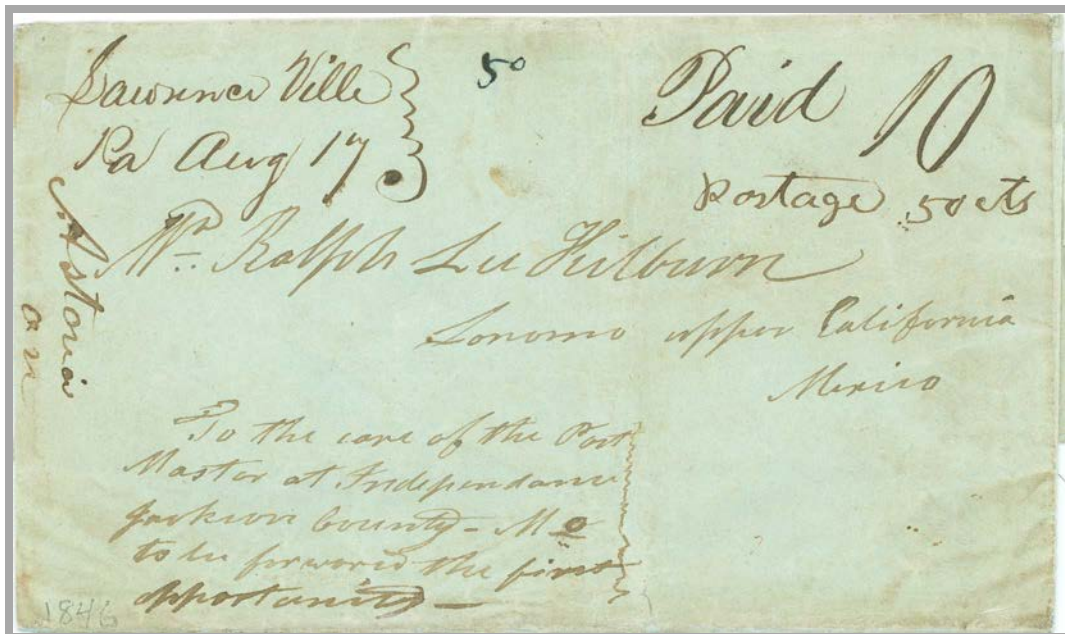 Lawrence Ville
Pa Aug 17
50
Paid 10
Postage 50 cts
Mr. Ralph Lee Kilburn
Sonomo upper California
Mexico
Astoria
To the care of the Post
Master at Independance
Jackson County - Mo
to be forward the first
opportunity -
1846